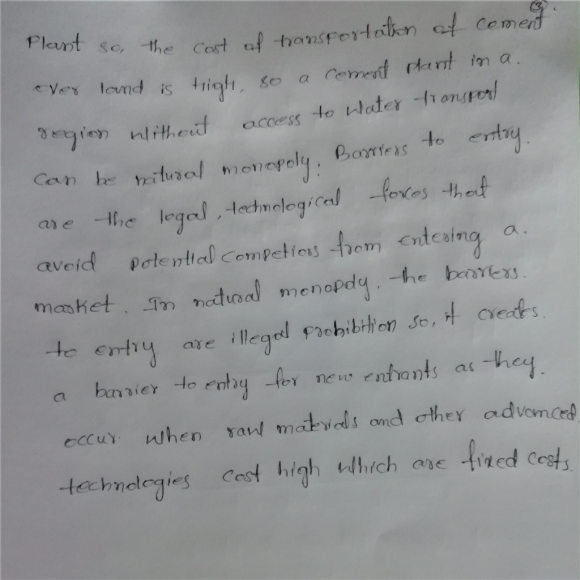 3.
Plant so, the cost of transportation of cement
over land is high. so a cement plant in a.
region without access to water transport
can be natural monopoly. Barriers to entry.
are the legal, technological forces that
avoid potential competitors from entering a.
market. In natural monopoly, the barriers.
to entry are illegal prohibition so, it creates.
a barrier to entry for new entrants as they.
occur when raw materials and other advanced
technologies cost high which are fixed costs.